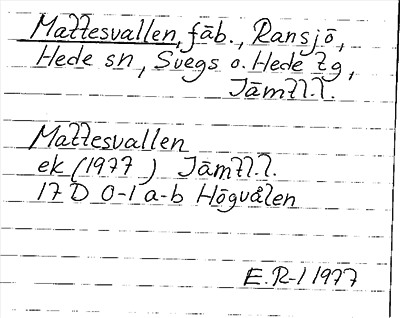 Mattesvallen, fäb., Ransjö,
Hede sn, Svegs o. Hede tg,
Jämtl.l.
Mattesvallen
ek (1977) Jämtl.l.
17 D 0-1 a-b Högvålen
E. R-l 1977